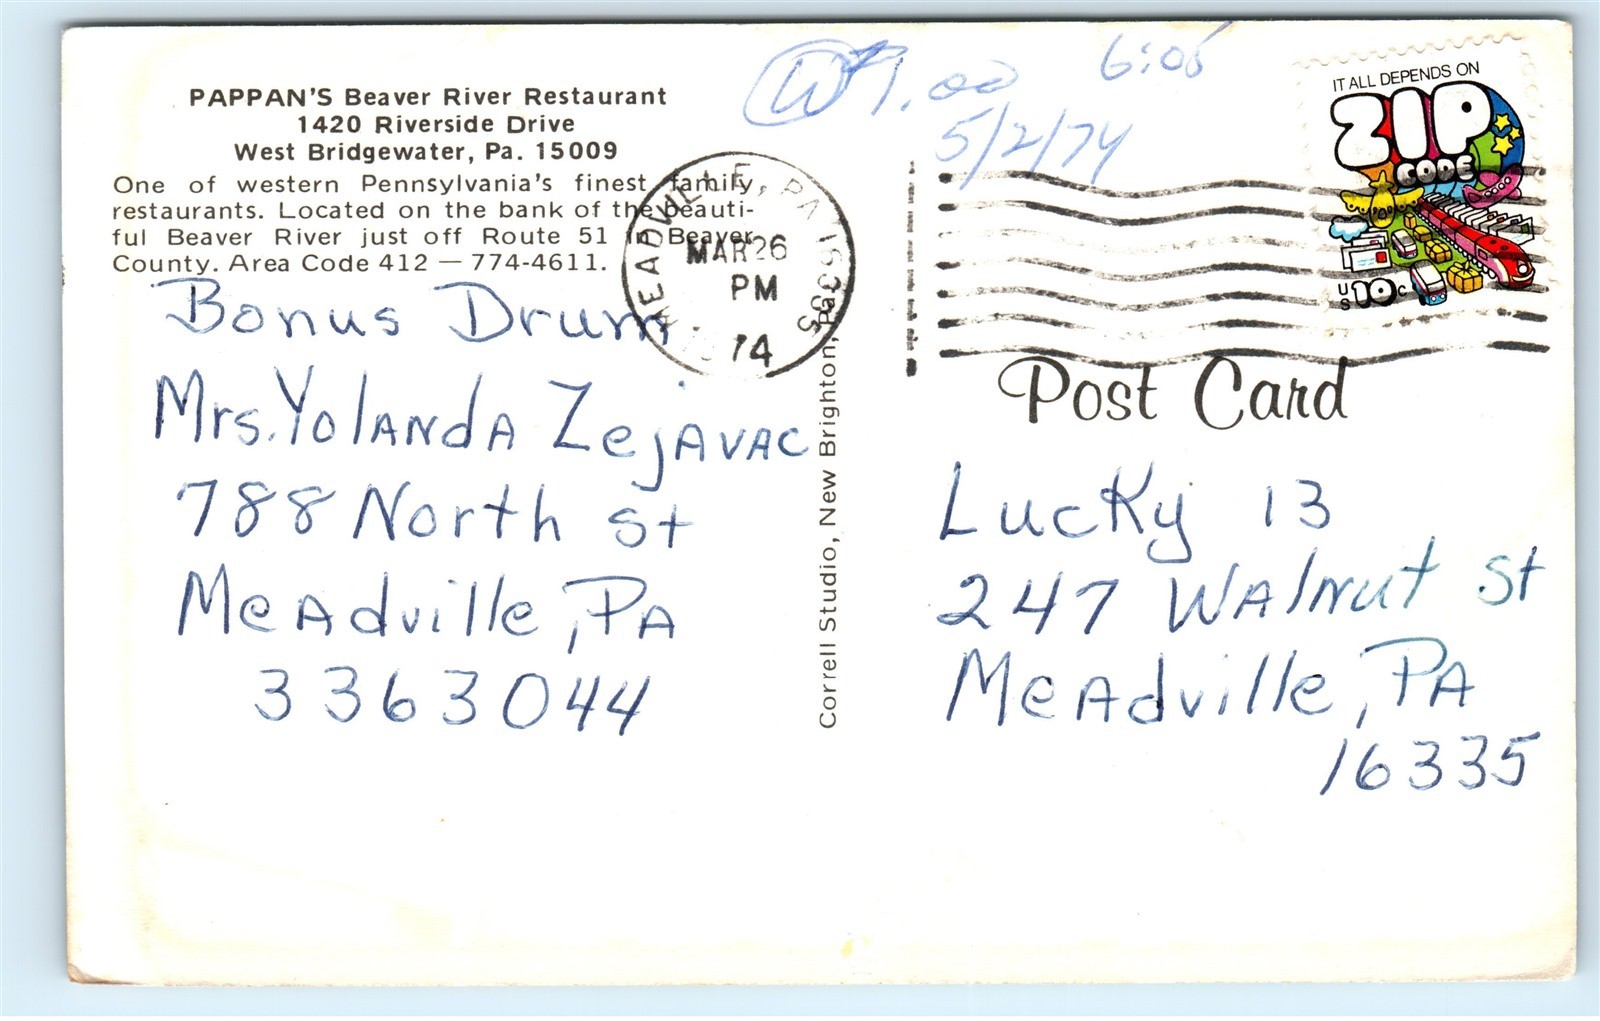 PAPPAN'S Beaver River Restaurant
1420 Riverside Drive
West Bridgewater, Pa. 15009
One of western Pennsylvania's finest family
restaurants. Located on the bank of the beauti-
ful Beaver River just off Route 51 in Beaver
County. Area Code 412 — 774-4611.
Bonus Drum
Mrs. Yolanda Zejavac
788 North St
Meadville, PA
3363044
MEADVILLE, PA 16335
MAR 26
PM
1974
Correll Studio, New Brighton, Pa.
W 1.00
6:05
5/2/74
IT ALL DEPENDS ON
ZIP
CODE
US 10c
Post Card
Lucky 13
247 Walnut St
Meadville, PA
16335